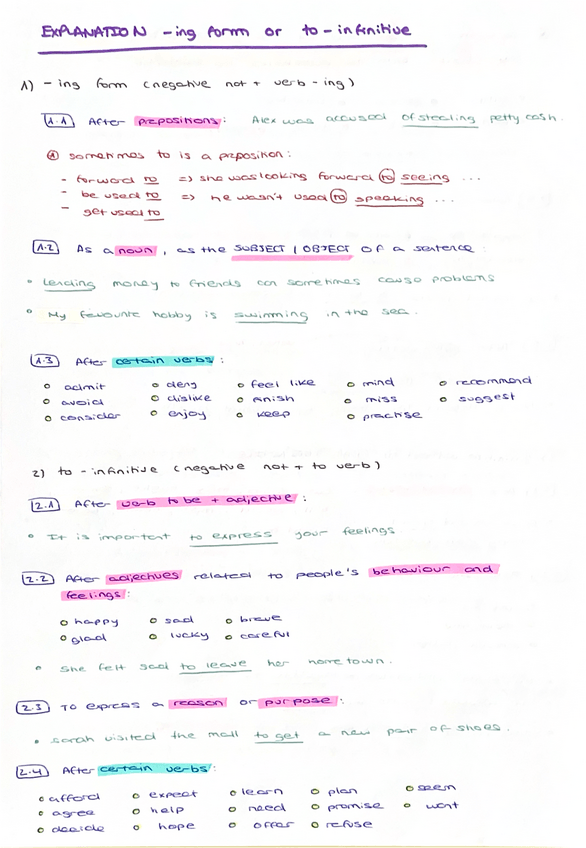 EXPLANATION -ing form or to-infinitive
1) -ing form (negative not + verb-ing)
1.1 After prepositions: Alex was accused of stealing petty cash.
sometimes to is a preposition:
- forward to => she was looking forward to seeing ...
- be used to => he wasn't used to speaking ...
- get used to
1.2 As a noun, as the SUBJECT / OBJECT of a sentence:
Lending money to friends can sometimes cause problems
My favourite hobby is swimming in the sea.
1.3 After certain verbs:
admit deny feel like mind recommend
avoid dislike finish miss suggest
consider enjoy keep practise
2) to-infinitive (negative not + to verb)
2.1 After verb to be + adjective:
It is important to express your feelings
2.2 After adjectives related to people's behaviour and
feelings:
happy sad brave
glad lucky careful
She felt sad to leave her hometown.
2.3 To express a reason or purpose:
Sarah visited the mall to get a new pair of shoes.
2.4 After certain verbs:
afford expect learn plan seem
agree help need promise want
decide hope offer refuse